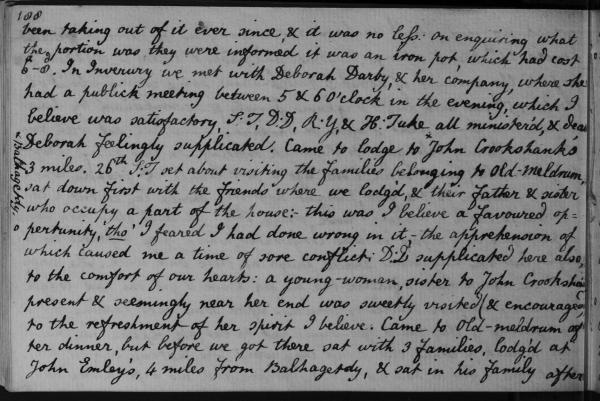 188
been taking out of it ever since, & it was no less: on enquiring what
the portion was they were informed it was an iron pot, which had cost
6-8. In Inverury we met with Deborah Darby, & her company, where she
had a publick meeting between 5 & 6 O'clock in the evening, which I
believe was satisfactory, S.T, D.D, R.Y, & H. Tuke all minister'd, & dear
Deborah feelingly supplicated. Came to lodge to John Crookshanks
3 miles. 26th S.T set about visiting the families belonging to Old-meldrum,
sat down first with the friends where we lodg'd, & their father & sister
who occupy a part of the house:- this was I believe a favoured op-
pertunity, tho' I feared I had done wrong in it,- the apprehension of
which caused me a time of sore conflict: D.D supplicated here also,
to the comfort of our hearts: a young-woman, sister to John Crooksha
present & seemingly near her end was sweetly visited, & encouraged,
to the refreshment of her spirit I believe. Came to Old-meldrum af
ter dinner, but before we got there sat with 3 families, lodg'd at
John Emleys, 4 miles from Balhagerdy, & sat in his family after
x Balhagerdy